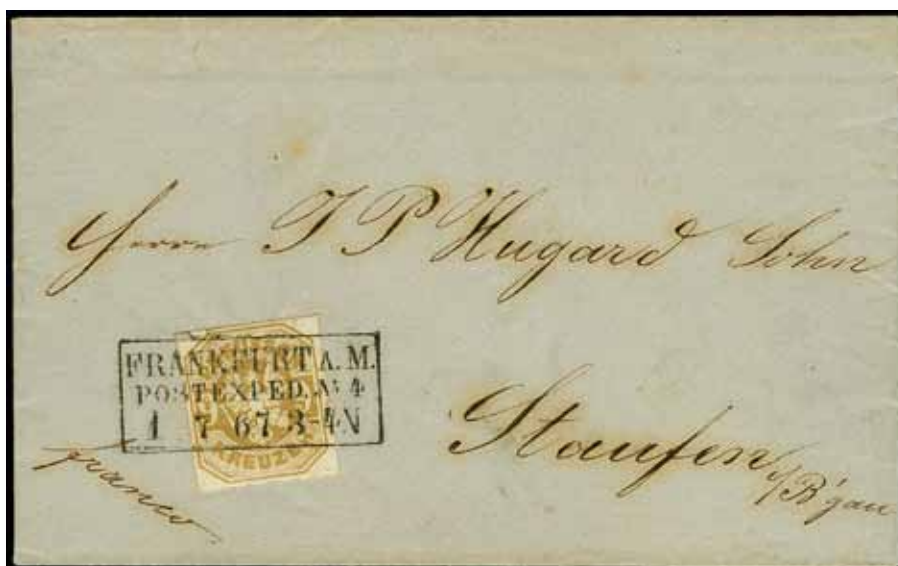 Herrn J P Hugard Sohn
FRANKFURT A. M.
POSTEXPED. № 4
1 7 67 3-4N
KREUZER
Staufen
i/B'gau
franco